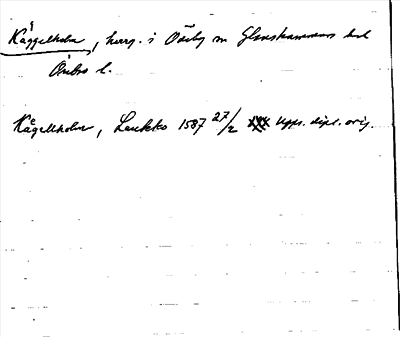 Käggelholm, herrg. i Ödeby sn Glanshammars hd
Örebro l.
Kägelholm, Laukko 1587 27/2 Upps. dipl. orig.